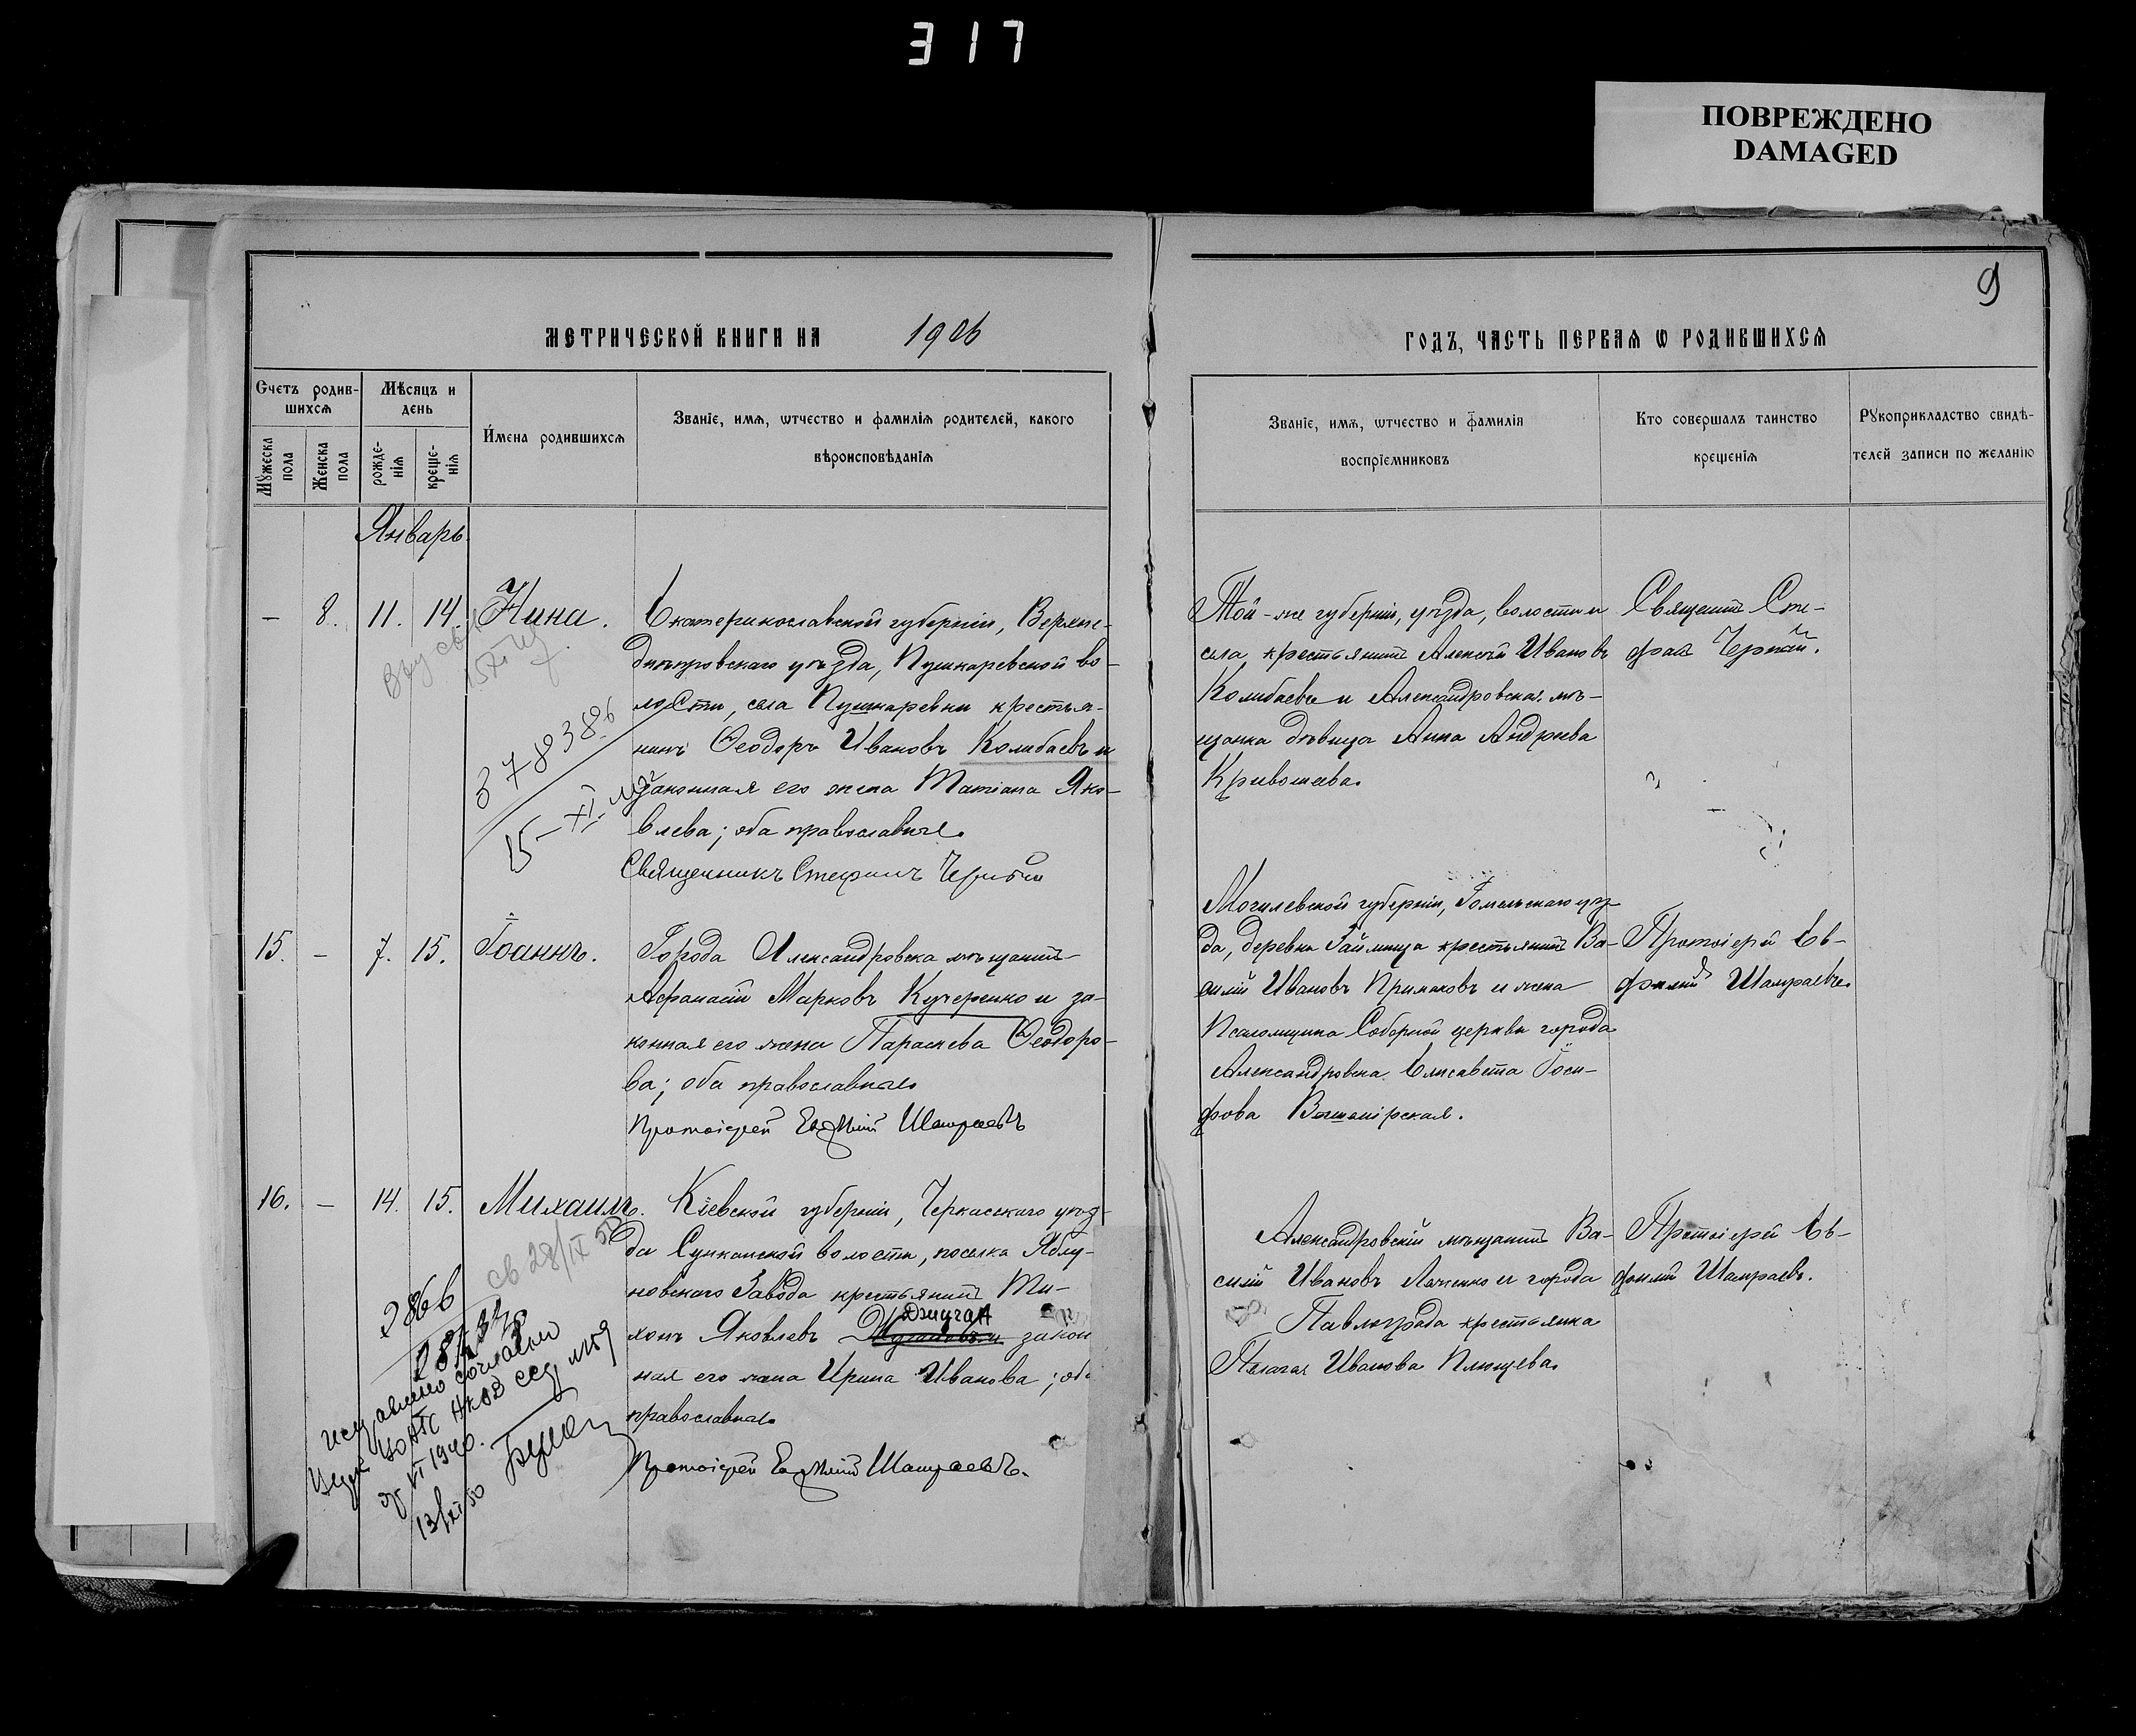 317
ПОВРЕЖДЕНО
DAMAGED
9
МЕТРИЧЕСКОЙ КНИГИ НА 1906
ГОДЪ, ЧАСТЬ ПЕРВАЯ Ѡ РОДИВШИХСЯ
Счетъ родив-
шихсѧ
Мѣсяцъ и
день
Мꙋжеска
пола
Женска
пола
рожде-
нїѧ
креще-
нїѧ
Имена родившихсѧ
Званїе, имѧ, ѡтчество и фамилїѧ родителей, какого
вѣроисповѣданїѧ
Званїе, имѧ, ѡтчество и фамилїѧ
воспрїемниковъ
Кто совершалъ таинство
крещенїѧ
Рꙋкоприкладство свидѣ-
телей записи по желанїю
Январь
— 8. 11. 14. Нина.
Екатеринославской губерніи, Верхне-
днѣпровскаго уѣзда, Пушкаревской во-
лости, села Пушкаревки крестья-
нинъ Ѳеодоръ Ивановъ Колибаевъ и
законная его жена Татіана Яко-
влева; оба православные.
Священникъ Стефанъ Чернай
378386
15-XI
Той-же губерніи, уѣзда, волости и
села крестьянинъ Алексѣй Ивановъ
Колибаевъ и Александровская мѣ-
щанка дѣвица Анна Андреева
Кривошеева.
Священникъ Сте-
фанъ
15. — 7. 15. Іоаннъ.
Города Александровска мѣщанинъ
Афанасій Марковъ Кучеренко и за-
конная его жена Параскева Ѳеодоро-
ва; оба православные.
Протоіерей Евфимій Шамраевъ
Могилевской губерніи, Гомельскаго уѣз-
да, деревни крестьянинъ Ва-
силій Ивановъ Примаковъ и жена
Псаломщика Соборной церкви города
Александровска Елисавета Іоси-
фова
Протоіерей Ев-
фимій Шамраевъ.
16. — 14. 15. Михаилъ.
Кіевской губерніи, Черкасскаго уѣз-
да Сунканской волости, поселка Яблу-
новскаго Завода крестьянинъ Ти-
хонъ Яковлевъ Джиган закон
ная его жена Ирина Иванова; оба
православные.
Протоіерей Евфимій Шамраевъ.
св 28/IX 50
2866
исправлено согласно
НКВД ССР №59
VI 1940.
13/XI 50
Александровскій мѣщанинъ Ва-
силій Ивановъ Ляшенко и города
Павлограда крестьянка
Пелагея Иванова Плющева.
Протоіерей Ев-
фимій Шамраевъ.